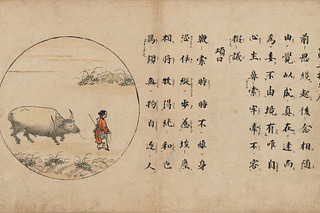 前思纔起後念相隨
由覺以成真在迷而
為妄不由境有唯自
心生鼻索牢牽不容
擬議
頌曰
鞭索時時不離身
恐伊縱步惹埃塵
相將牧得純和也
羈鎖無拘自逐人